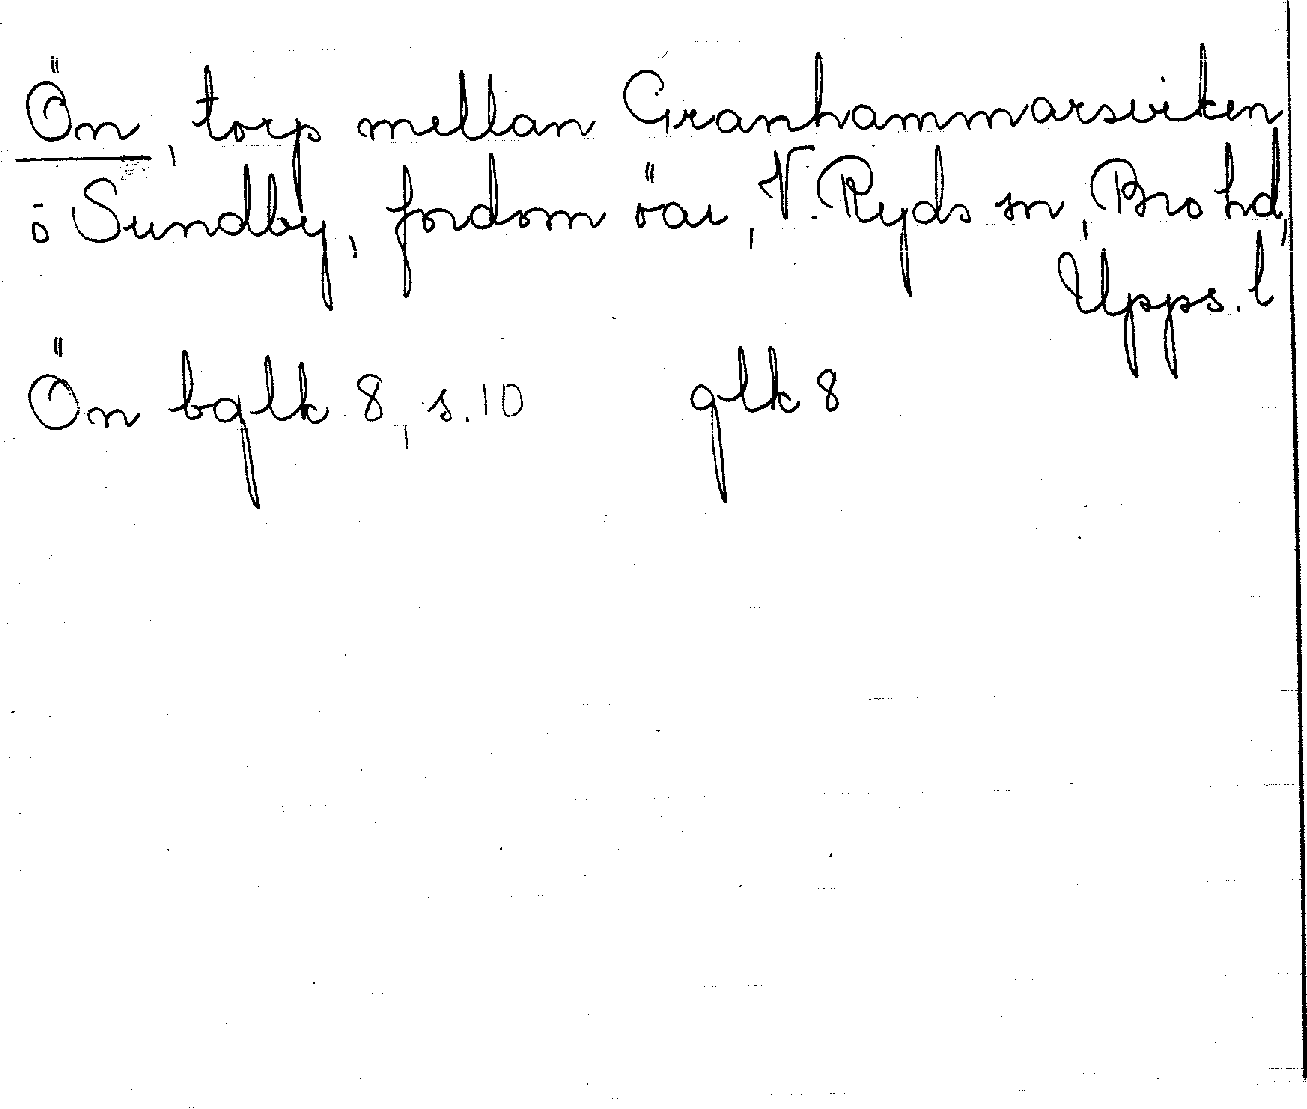 Ön, torp mellan Granhammarsviken
o Sundby, fordom öar, V. Ryds sn, Bro hd,
Upps. l
Ön bglk 8, s. 10 glk 8